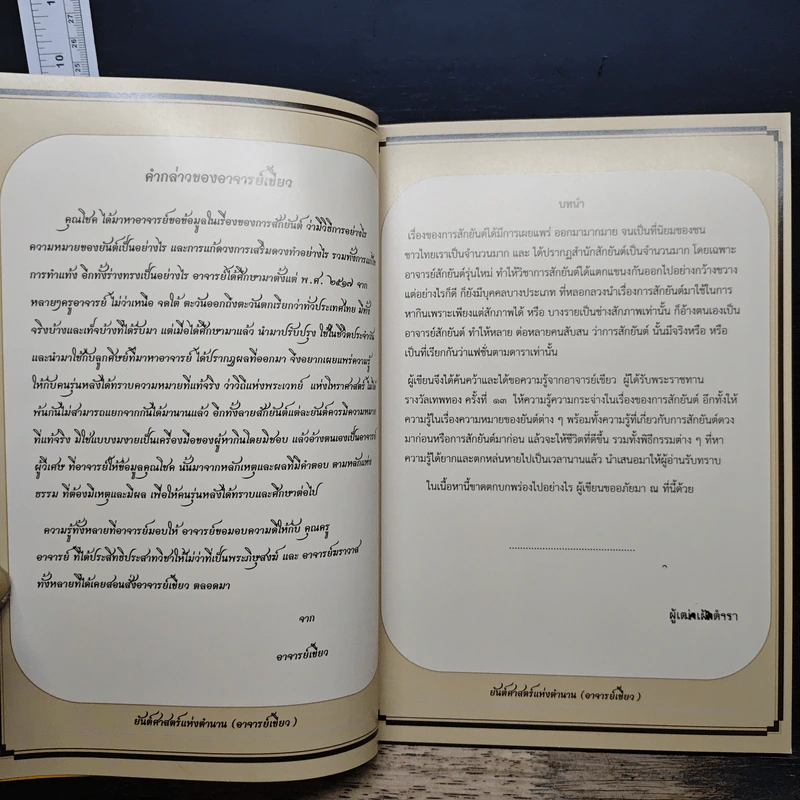 10
27
26
25
คำกล่าวของอาจารย์เขียว
คุณโชค ได้มาหาอาจารย์ขอข้อมูลในเรื่องของการสักยันต์ ว่ามีวิธีการอย่างไร
ความหมายของยันต์เป็นอย่างไร และการแก้ดวงการเสริมดวงทำอย่างไร รวมทั้งการแก้ไข
การทำแท้ง อีกทั้งร่างทรงเป็นอย่างไร อาจารย์ได้ศึกษามาตั้งแต่ พ.ศ. ๒๕๑๗ จาก
หลายๆครูอาจารย์ ไม่ว่าเหนือ จดใต้ ตะวันออกถึงตะวันตกเรียกว่าทั่วประเทศไทย มีทั้ง
จริงบ้างและเท็จบ้างที่ได้รับมา แต่เมื่อได้ศึกษามาแล้ว นำมาปรับปรุง ใช้ในชีวิตประจำวัน
และนำมาใช้กับลูกศิษย์ที่มาหาอาจารย์ ได้ปรากฏผลที่ออกมา จึงอยากเผยแพร่ความรู้
ให้กับคนรุ่นหลังได้ทราบความหมายที่แท้จริง ว่าวิถีแห่งพระเวทย์ แห่งโหราศาสตร์
พ้นกันไม่สามารถแยกจากกันได้มานานแล้ว อีกทั้งลายสักยันต์แต่ละยันต์ควรมีความหมาย
ที่แท้จริง มิใช่แบบงมงายเป็นเครื่องมือของผู้หากินโดยมิชอบ แล้วอ้างตนเองเป็นอาจารย์
ผู้วิเศษ ที่อาจารย์ให้ข้อมูลคุณโชค นั้นมาจากหลักเหตุและผลที่มีคำตอบ ตามหลักแห่ง
ธรรม ที่ต้องมีเหตุและมีผล เพื่อให้คนรุ่นหลังได้ทราบและศึกษาต่อไป
ความรู้ทั้งหลายที่อาจารย์มอบให้ อาจารย์ขอมอบความดีให้กับ คุณครู
อาจารย์ ที่ได้ประสิทธิประสาทวิชาให้ไม่ว่าที่เป็นพระภิษุสงฆ์ และ อาจารย์ฆราวาส
ทั้งหลายที่ได้เคยสอนสั่งอาจารย์เขียว ตลอดมา
จาก
อาจารย์เขียว
ยันต์ศาสตร์แห่งตำนาน (อาจารย์เขียว )
บทนำ
เรื่องของการสักยันต์ได้มีการเผยแพร่ ออกมามากมาย จนเป็นที่นิยมของชน
ชาวไทยเราเป็นจำนวนมาก และ ได้ปรากฏสำนักสักยันต์เป็นจำนวนมาก โดยเฉพาะ
อาจารย์สักยันต์รุ่นใหม่ ทำให้วิชาการสักยันต์ได้แตกแขนงกันออกไปอย่างกว้างขวาง
แต่อย่างไรก็ดี ก็ยังมีบุคคลบางประเภท ที่หลอกลวงนำเรื่องการสักยันต์มาใช้ในการ
หากินเพราะเพียงแต่สักภาพได้ หรือ บางรายเป็นช่างสักภาพเท่านั้น ก็อ้างตนเองเป็น
อาจารย์สักยันต์ ทำให้หลาย ต่อหลายคนสับสน ว่าการสักยันต์ นั้นมีจริงหรือ หรือ
เป็นที่เรียกกันว่าแฟชั่นตามดาราเท่านั้น
ผู้เขียนจึงได้ค้นคว้าและได้ขอความรู้จากอาจารย์เขียว ผู้ได้รับพระราชทาน
รางวัลเทพทอง ครั้งที่ ๑๓ ให้ความรู้ความกระจ่างในเรื่องของการสักยันต์ อีกทั้งให้
ความรู้ในเรื่องความหมายของยันต์ต่าง ๆ พร้อมทั้งความรู้ที่เกี่ยวกับการสักยันต์ดวง
มาก่อนหรือการสักยันต์มาก่อน แล้วจะให้ชีวิตที่ดีขึ้น รวมทั้งพิธีกรรมต่าง ๆ ที่หา
ความรู้ได้ยากและตกหล่นหายไปเป็นเวลานานแล้ว นำเสนอมาให้ผู้อ่านรับทราบ
ในเนื้อหานี้ขาดตกบกพร่องไปอย่างไร ผู้เขียนขออภัยมา ณ ที่นี้ด้วย
........................................
ผู้เฒ่าเฝ้าตำรา
ยันต์ศาสตร์แห่งตำนาน (อาจารย์เขียว )